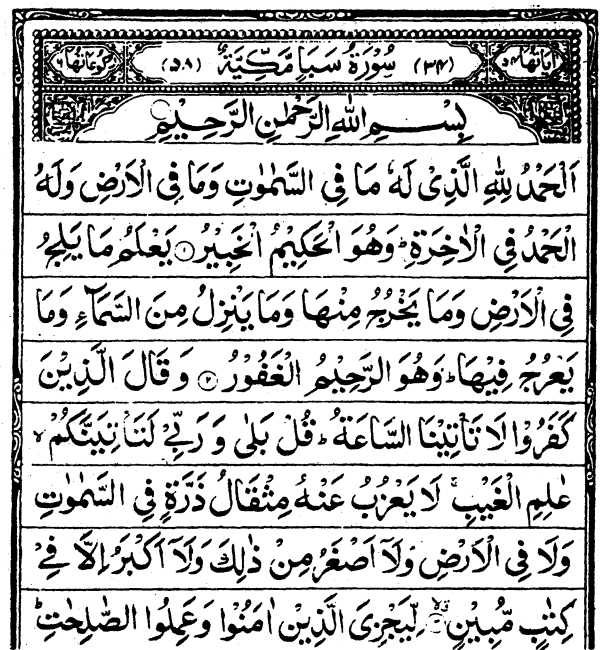 اٰيَاتُهَا ٥٤ (٣٤) سُوْرَةُ سَبَاٍ مَّكِّيَّةٌ (٥٨) رُكُوْعَاتُهَا ٦
بِسْمِ اللهِ الرَّحْمٰنِ الرَّحِيْمِ
اَلْحَمْدُ لِلّٰهِ الَّذِىْ لَهٗ مَا فِى السَّمٰوٰتِ وَمَا فِى الْاَرْضِ وَلَهُ
الْحَمْدُ فِى الْاٰخِرَةِ ؕ وَهُوَ الْحَكِيْمُ الْخَبِيْرُ ۝۱ يَعْلَمُ مَا يَلِجُ
فِى الْاَرْضِ وَمَا يَخْرُجُ مِنْهَا وَمَا يَنْزِلُ مِنَ السَّمَآءِ وَمَا
يَعْرُجُ فِيْهَا ؕ وَهُوَ الرَّحِيْمُ الْغَفُوْرُ ۝۲ وَقَالَ الَّذِيْنَ
كَفَرُوْا لَا تَاْتِيْنَا السَّاعَةُ ؕ قُلْ بَلٰى وَرَبِّىْ لَتَاْتِيَنَّكُمْ ۙ
عٰلِمِ الْغَيْبِ ۚ لَا يَعْزُبُ عَنْهُ مِثْقَالُ ذَرَّةٍ فِى السَّمٰوٰتِ
وَلَا فِى الْاَرْضِ وَلَاۤ اَصْغَرُ مِنْ ذٰلِكَ وَلَاۤ اَكْبَرُ اِلَّا فِىْ
كِتٰبٍ مُّبِيْنٍ ۝۳ۙ لِّيَجْزِىَ الَّذِيْنَ اٰمَنُوْا وَعَمِلُوا الصّٰلِحٰتِ ؕ